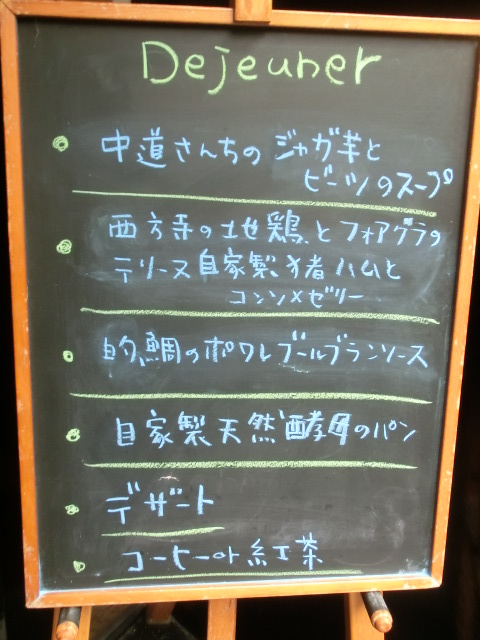 Dejeuner
中道さんちの ジャガ芋と
ビーツのスープ
西方寺の地鶏とフォアグラの
テリーヌ自家製猪ハムと
コンソメゼリー
的鯛のポワレブールブランソース
自家製天然酵母のパン
デザート
コーヒーor紅茶